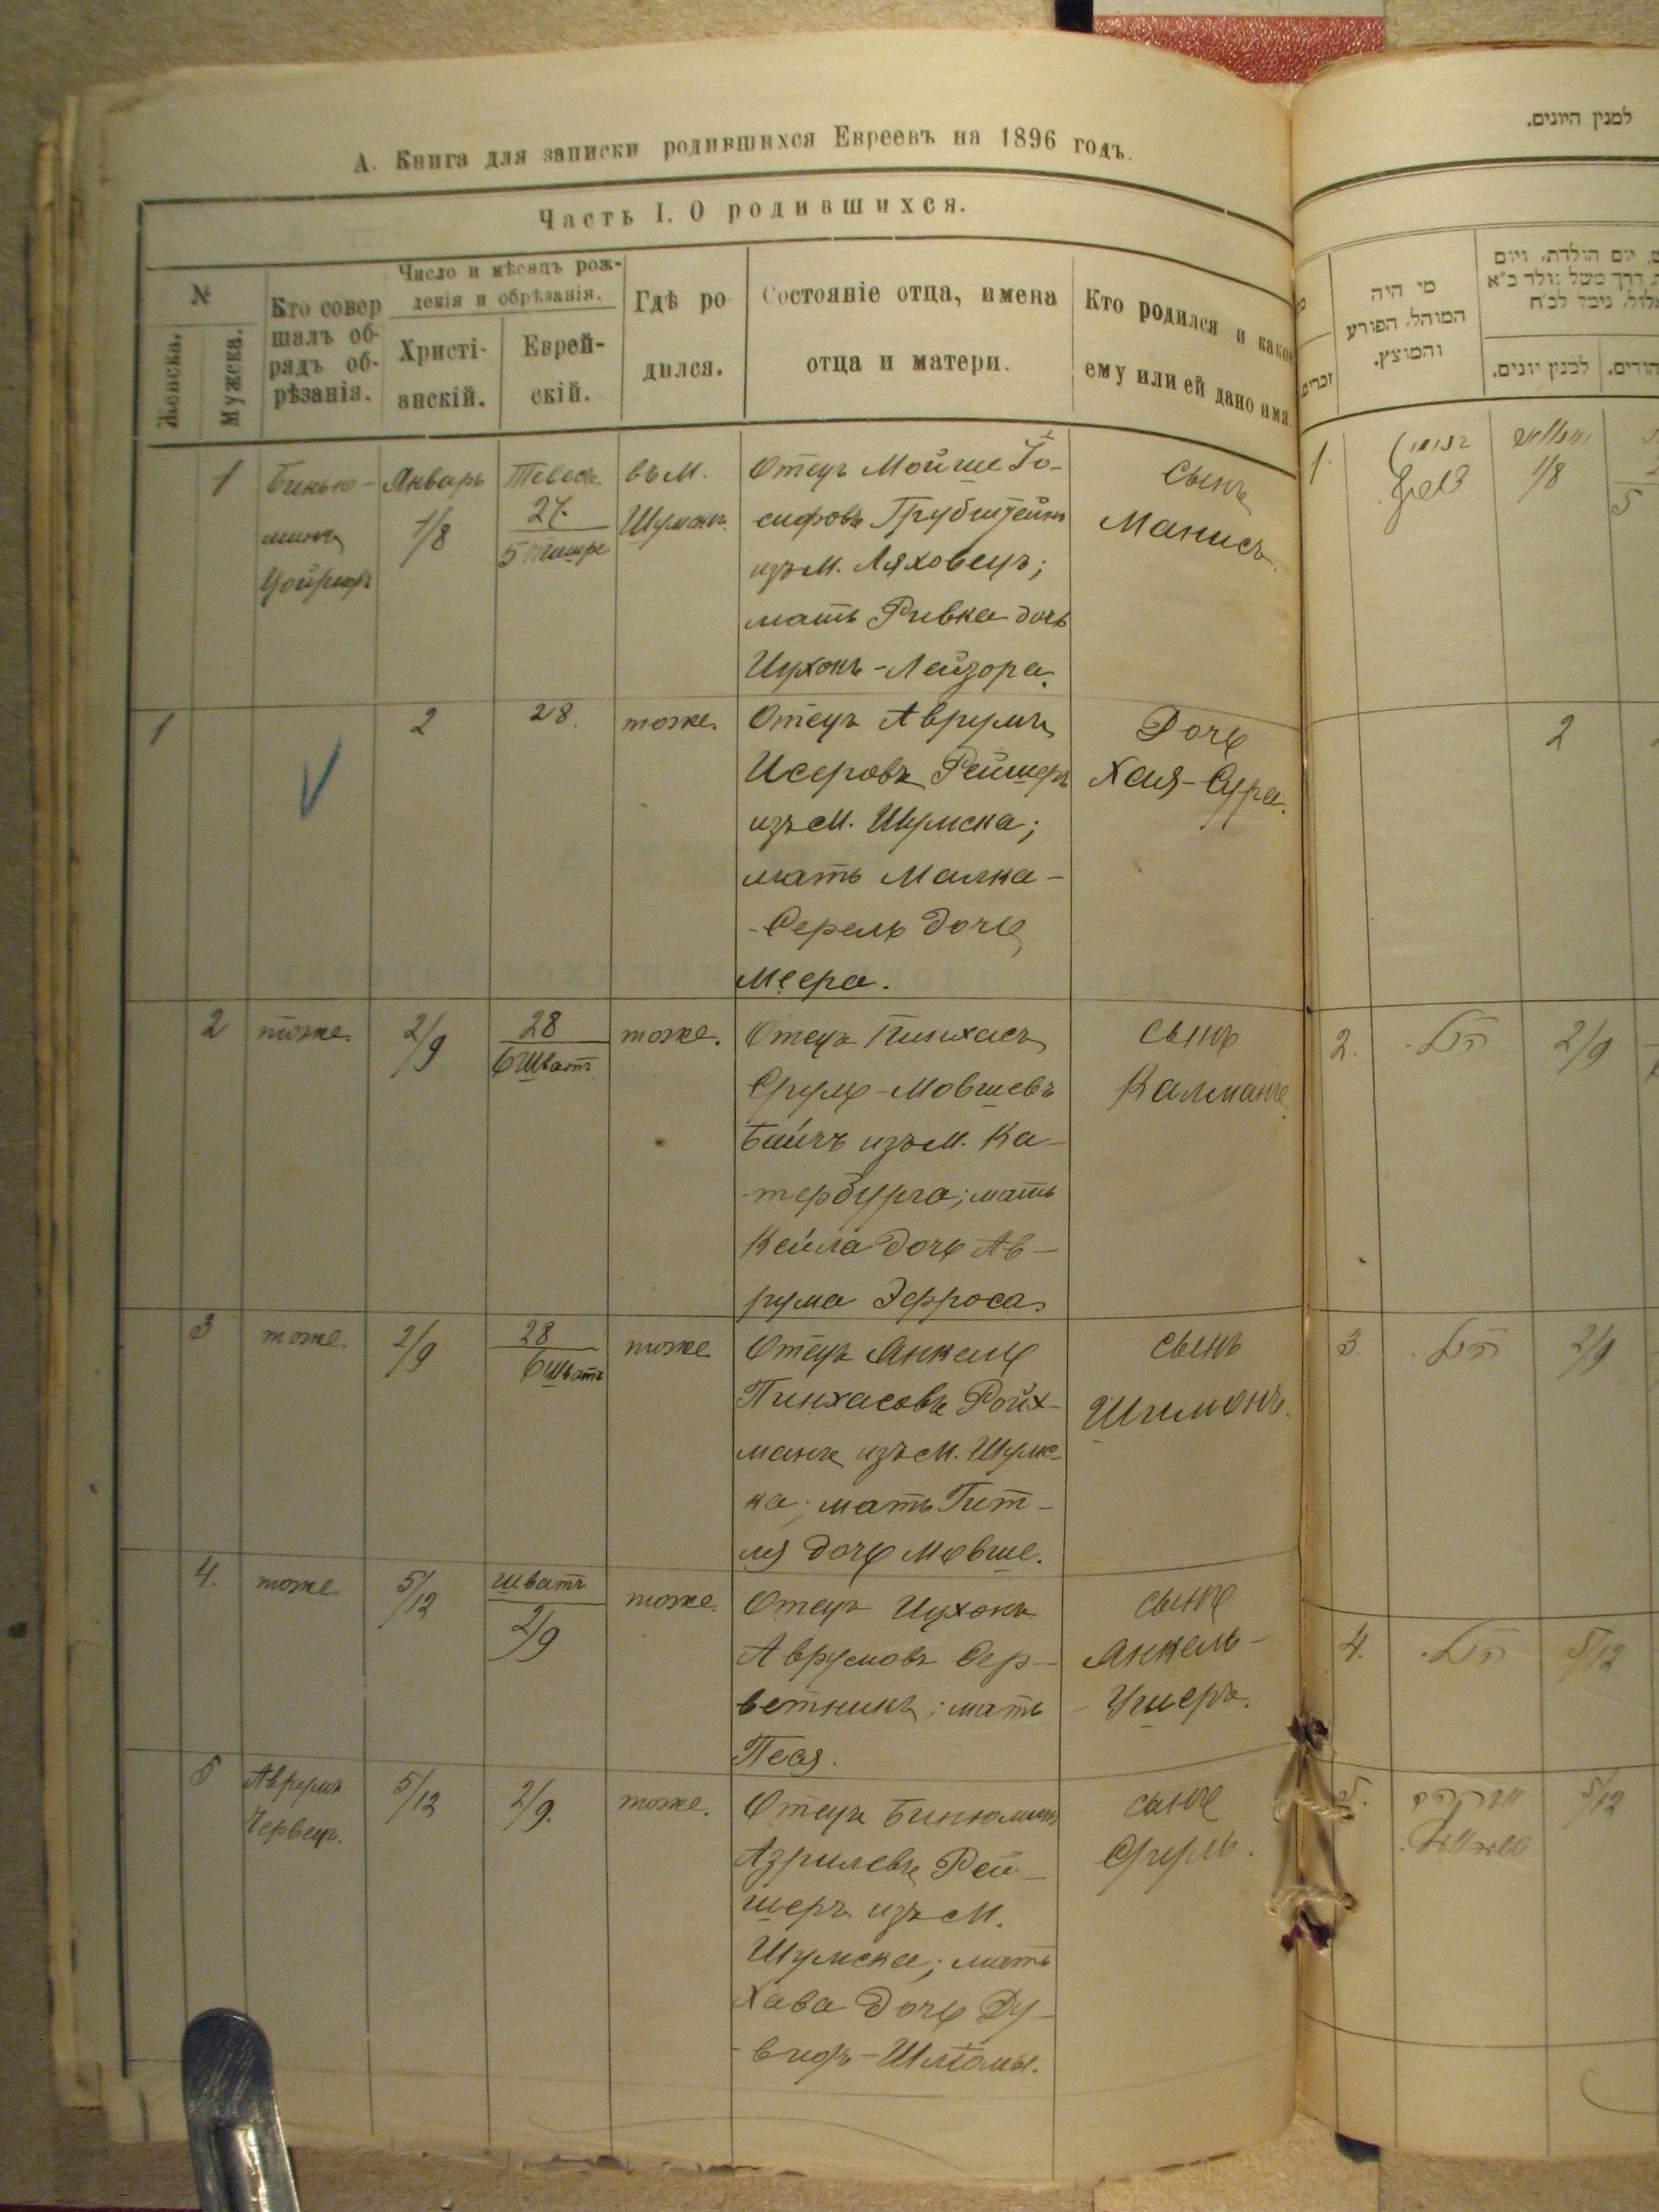 А. Книга для записки родившихся Евреевъ на 1896 годъ.
Часть I. О родившихся.
№
Женска.
Мужска.
Кто совер
шалъ об-
рядъ об-
рѣзанія.
Число и мѣсяцъ рож-
денія и обрѣзанія.
Христі-
анскій.
Еврей-
скій.
Гдѣ ро
дился.
Состояніе отца, имена
отца и матери.
Кто родился и какое
ему или ей дано имя
1
Бинью-
минъ
Январь
1/8
Тевесъ
27.
5
въ М.
Шумскъ.
Отецъ Мойше Іо-
сифовъ Грубштейнъ
изъ М. Ляховецъ;
мать Ривка дочь
Ицхокъ-Лейзора.
Сынъ
Манисъ.
1
2
28.
тоже.
Отецъ Аврумъ
Исеровъ Рейшеръ
изъ М. Шумска;
мать Малка-
-Серель дочь
Меера.
Дочь
Хая-Сура.
2
тоже.
2/9
28
6 Шватъ
тоже.
Отецъ Пинхасъ
Сруль-Мовшевъ
Байчъ изъ М. Ка-
-тербурга; мать
Кейла дочь Ав-
рума Эфроса.
сынъ
Калманъ
3
тоже.
2/9
28
6 Шватъ
тоже
Отецъ Янкель
Пинхасовъ Ройх-
манъ изъ М. Шумс-
ка; мать Гит-
ля дочь Мовше.
сынъ
Шимонъ.
4.
тоже
5/12
шватъ
2/9
тоже.
Отецъ Ицхокъ
Аврумовъ Сер-
ветникъ; мать
Песя.
сынъ
Янкель-
-Ушеръ.
5
Аврумъ
Червецъ.
5/12
2/9.
тоже.
Отецъ Бинюминъ
Азрилевъ Рей-
шеръ изъ М.
Шумска; мать
Хава дочь Ду-
-видъ-Шлёмы.
сынъ
Сруль.
למנין היונים.
מי היה
המוהל, הפורע
והמוצץ.
יום הולדת, ויום
למנין יונים.
זכרים
1.
בנימין
1/8
5
2
2.
הנ״ל.
2/9
3.
הנ״ל.
2/9
4.
הנ״ל.
5/12
5.
אברהם
5/12